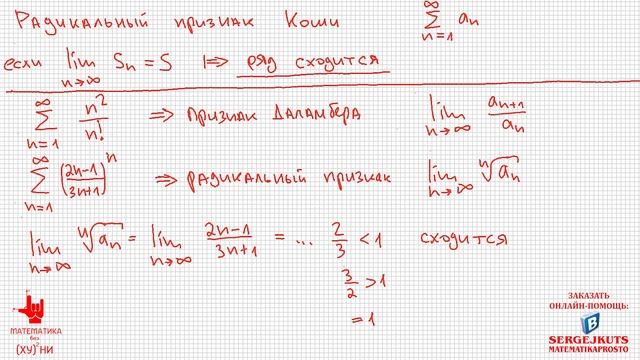 Радикальный признак Коши ∞∑n=1 an
если lim n→∞ Sn = S |⇒ ряд сходится
∞∑n=1 n²/n! ⇒ признак Даламбера lim n→∞ an+1/an
∞∑n=1 ((2n-1)/(3n+1))^n ⇒ радикальный признак lim n→∞ ⁿ√an
lim n→∞ ⁿ√an = lim n→∞ (2n-1)/(3n+1) = ... 2/3 < 1 сходится
3/2 > 1
= 1
МАТЕМАТИКА
без
(ХУ)²НИ
ЗАКАЗАТЬ
ОНЛАЙН-ПОМОЩЬ:
B
SERGEJKUTS
MATEMATIKAPROSTO